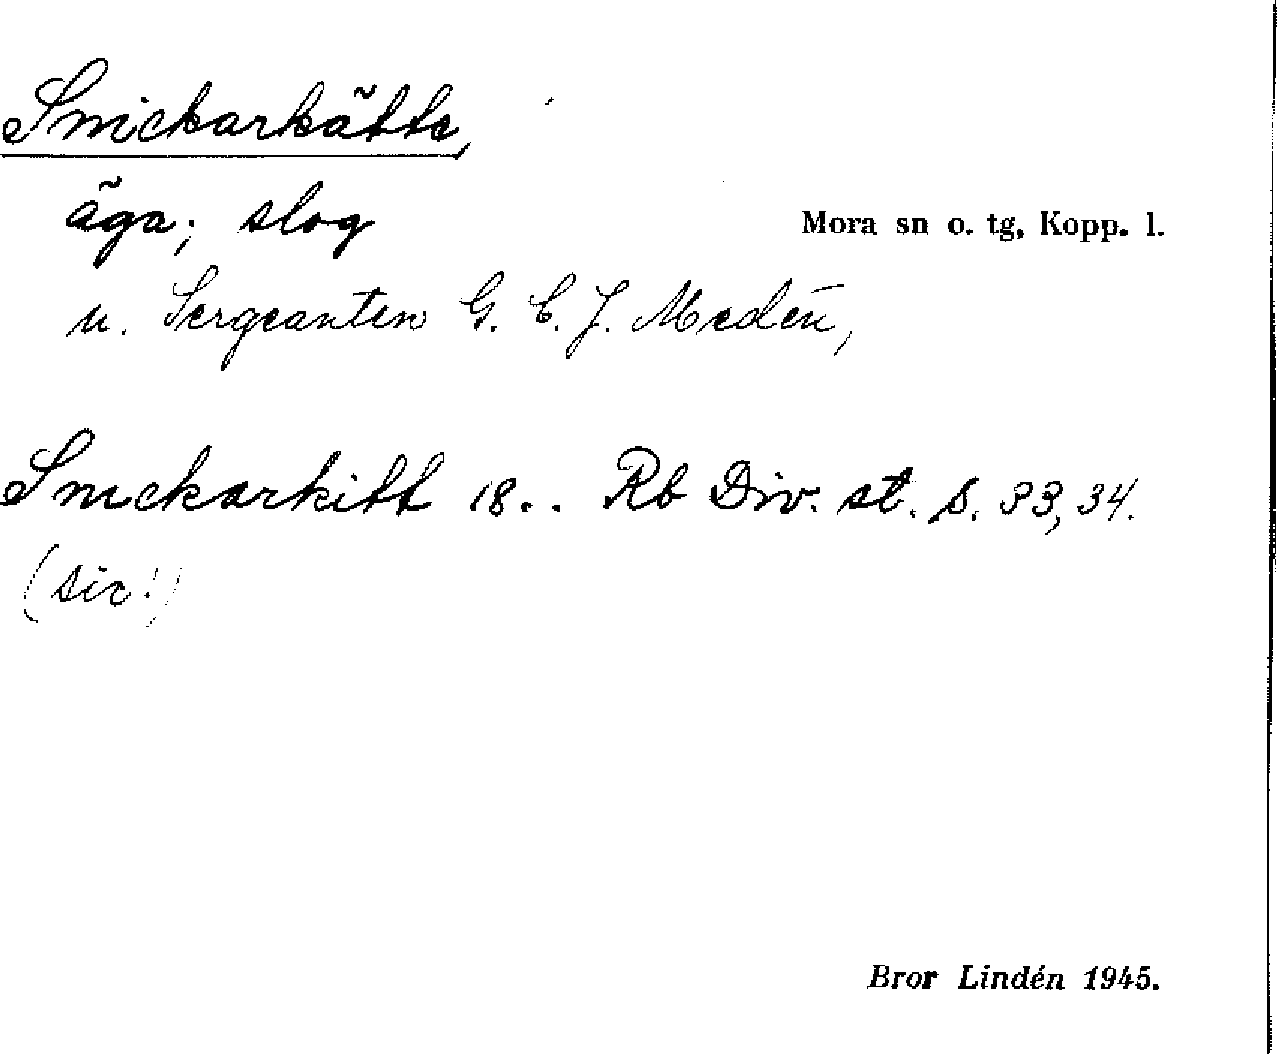 Snickarkätte,
äga; slog
Mora sn o. tg, Kopp. l.
u. Sergeanten G. C. J. Medén,
Snickarkitt 18.. Rb Div. st. s. 33, 34.
(sic!)
Bror Lindén 1945.